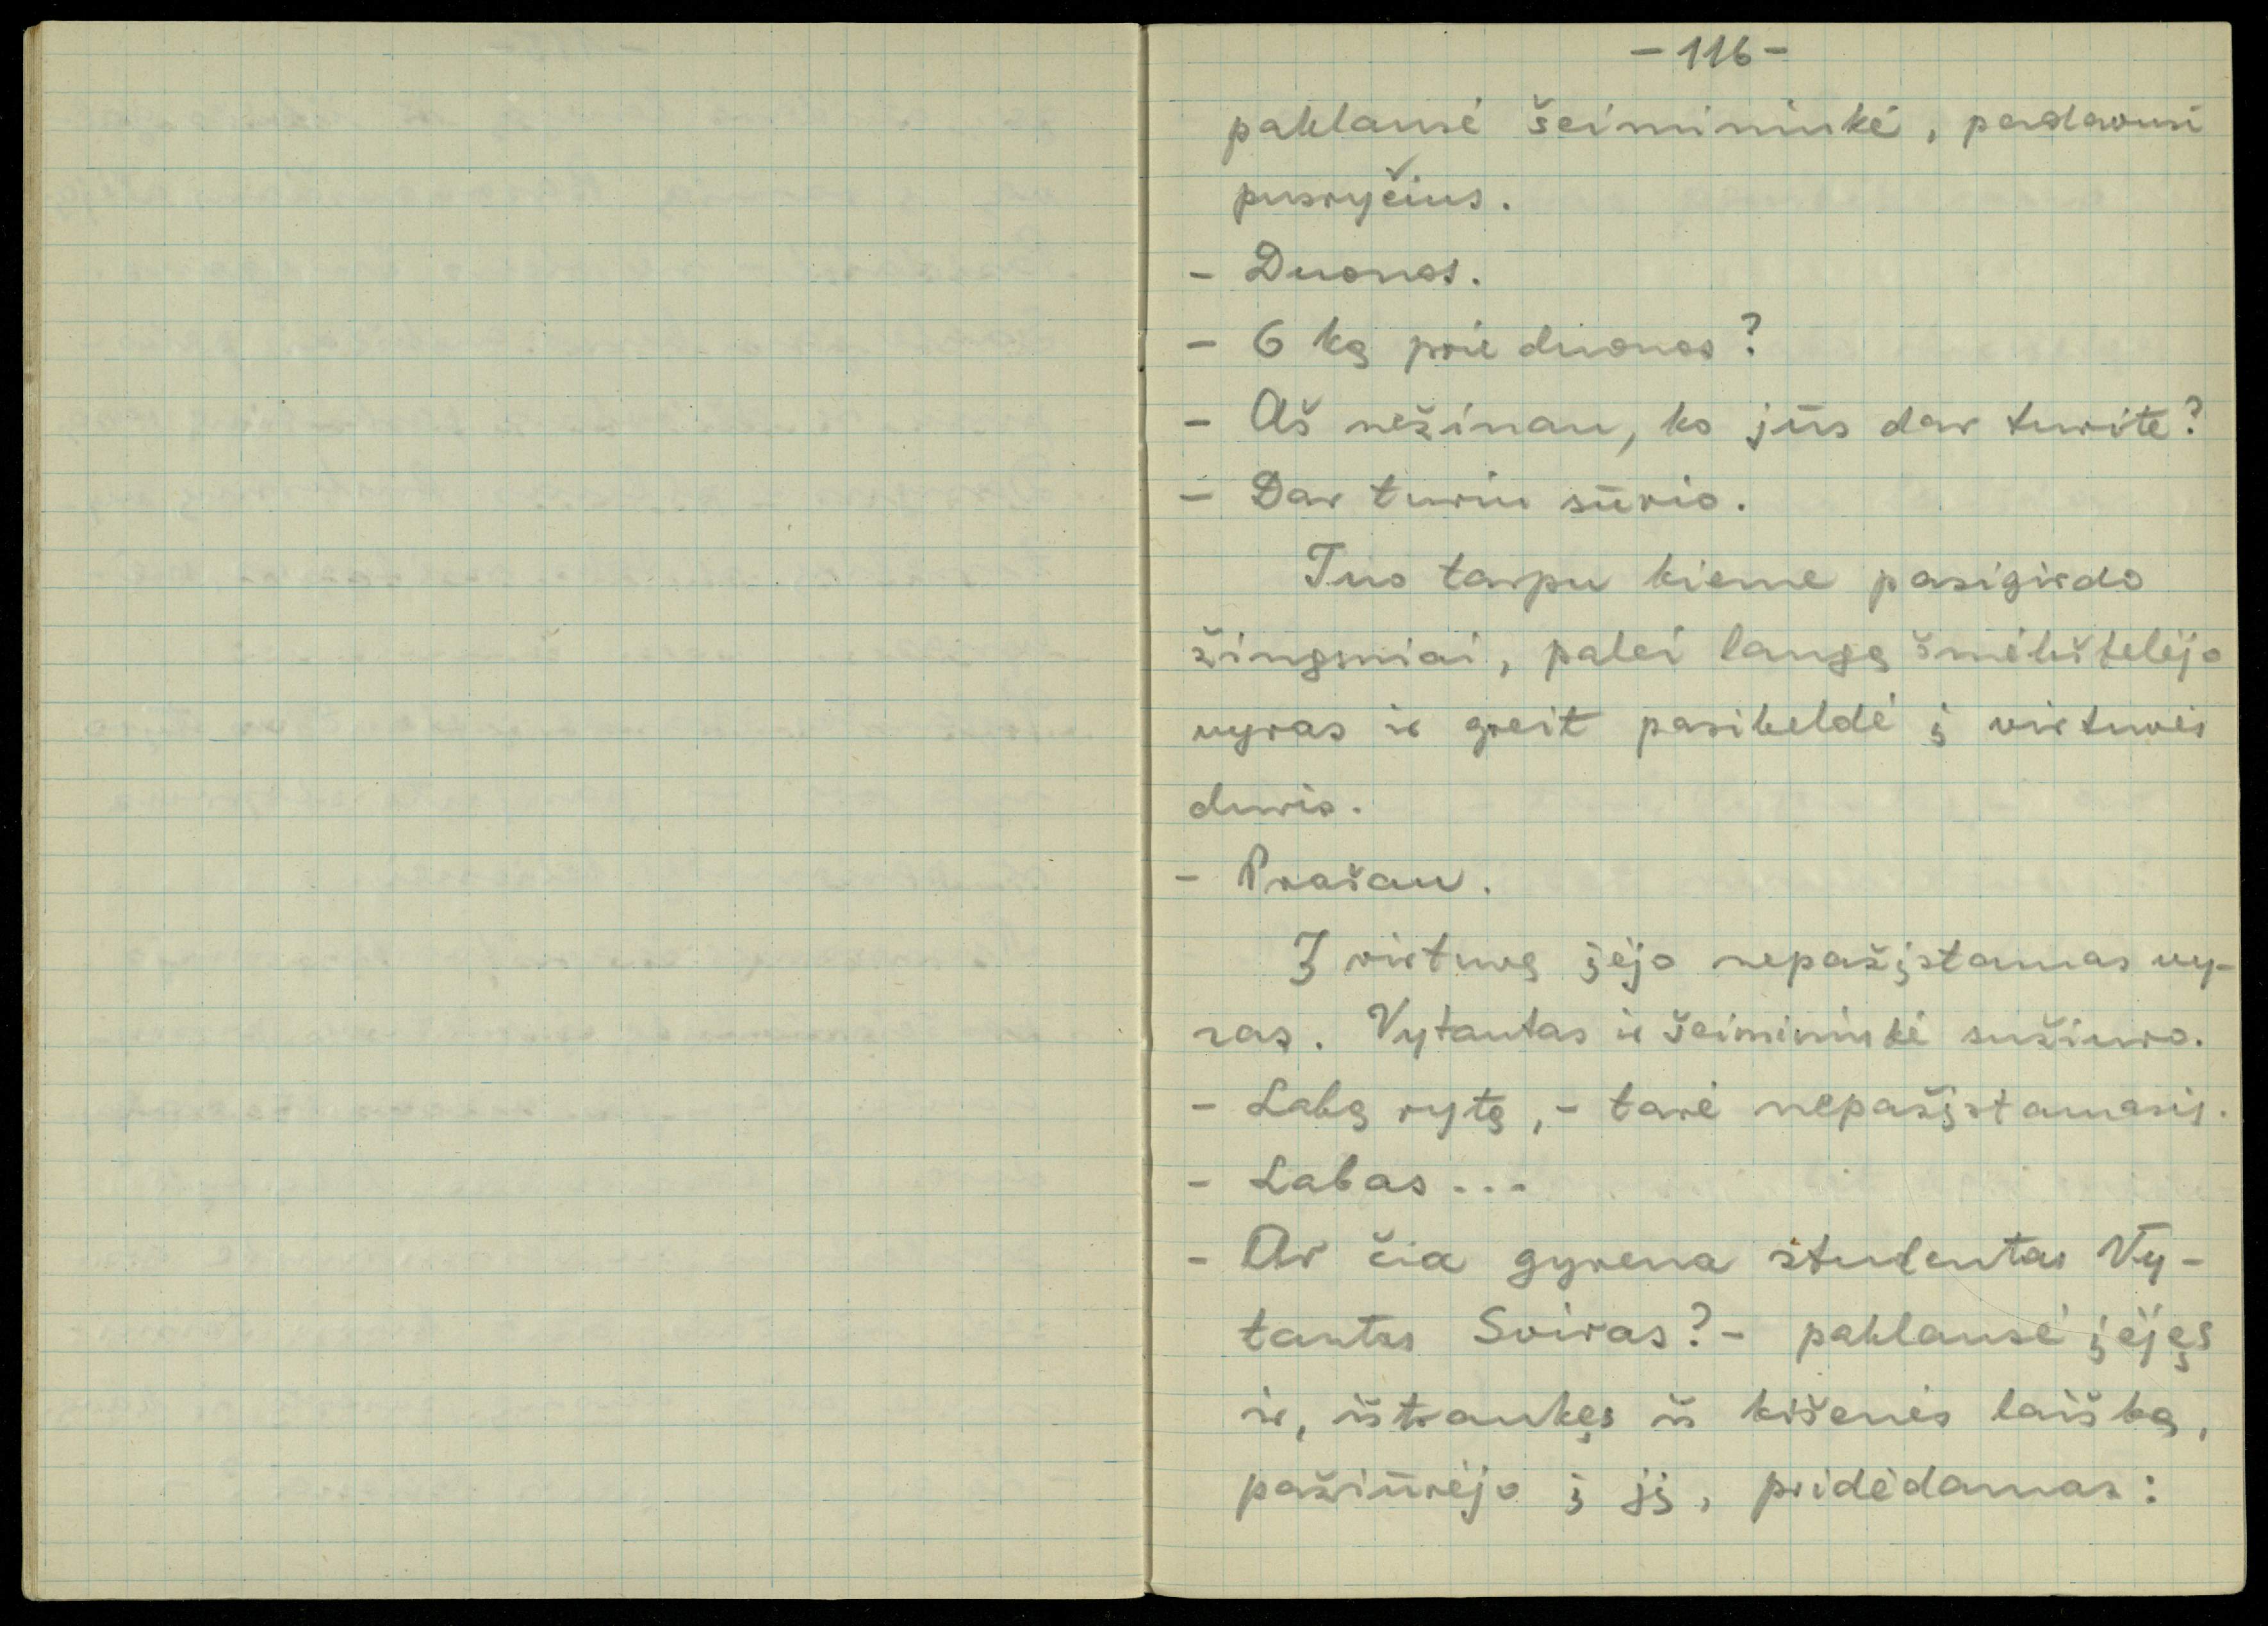 - 116 -
paklausė šeimininkė, padavusi
pusryčius.
- Duonos.
- O ką prie duonos?
- Aš nežinau, ko jūs dar turite?
- Dar turiu sūrio.
Tuo tarpu kieme pasigirdo
žingsniai, palei langą šmėkštelėjo
vyras ir greit pasibeldė į virtuvės
duris.
- Prašau.
Į virtuvę įėjo nepažįstamas vy-
ras. Vytautas ir šeimininkė sužiuro.
- Labą rytą, - tarė nepažįstamasis.
- Labas...
- Ar čia gyvena studentas Vy-
tautas Sviras? - paklausė įėjęs
ir, ištraukęs iš kišenės laišką,
pažiūrėjo į jį, pridėdamas: